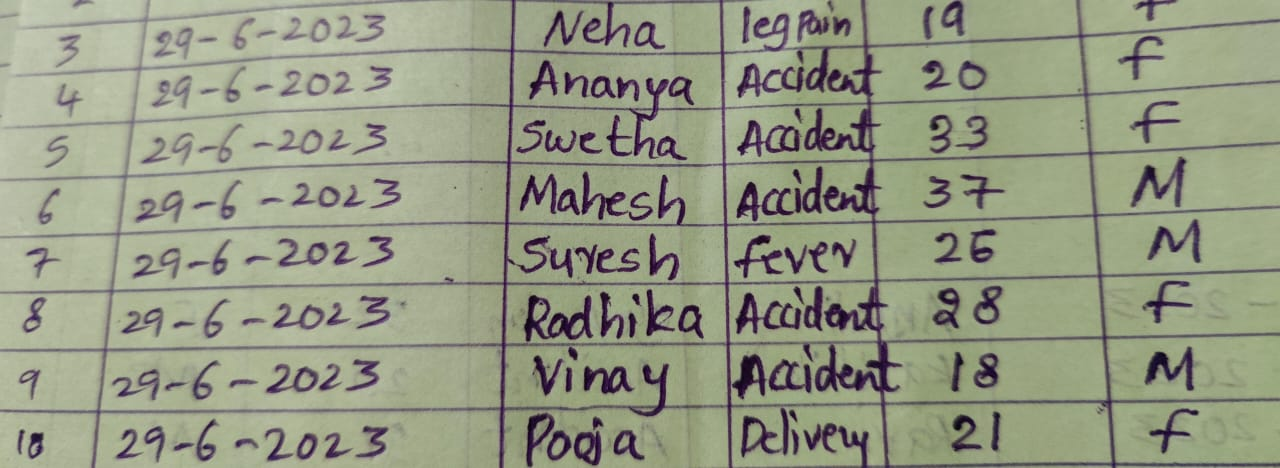 3 29-6-2023 Neha leg pain 19 f
4 29-6-2023 Ananya Accident 20 f
5 29-6-2023 Swetha Accident 33 f
6 29-6-2023 Mahesh Accident 37 M
7 29-6-2023 Suresh fever 26 M
8 29-6-2023 Radhika Accident 28 f
9 29-6-2023 Vinay Accident 18 M
10 29-6-2023 Pooja Delivery 21 f